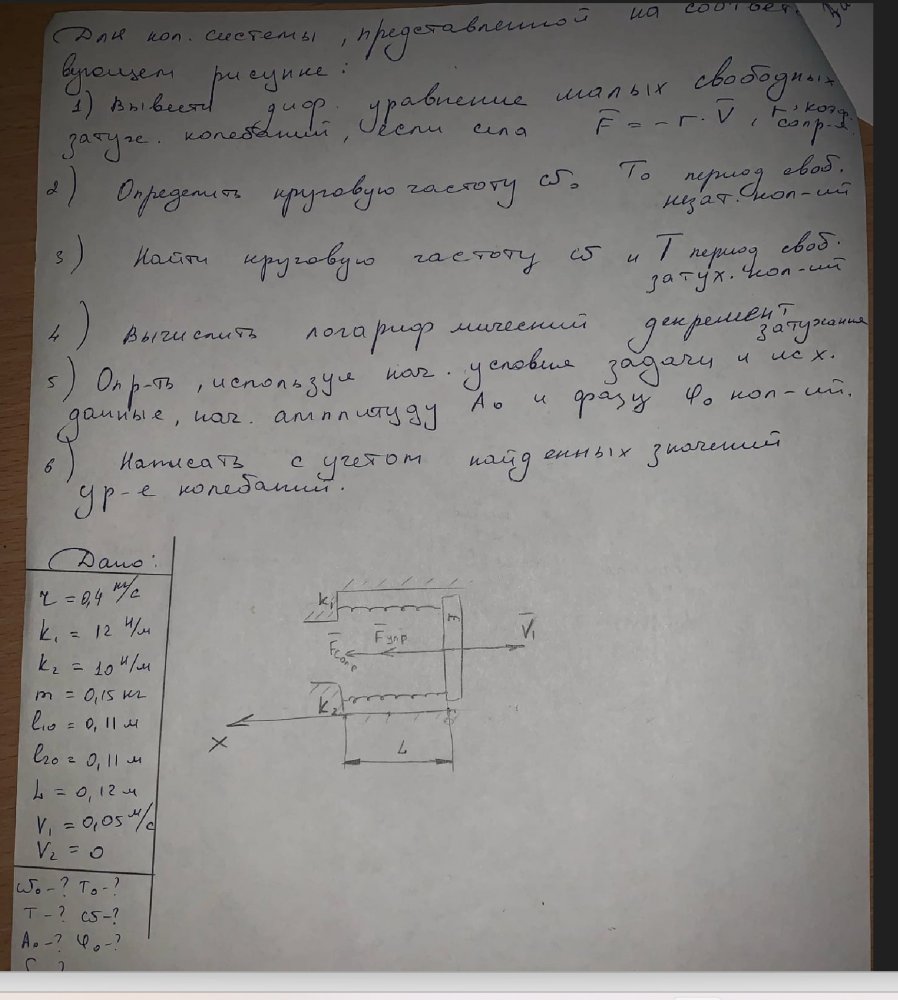 Для кол. системы, представленной на соответ.
вующем рисунке:
1) Вывести диф. уравнение малых свободных
затух. колебаний, если сила F̅ = -r·V̅, r, коэф.
сопр-я.
2) Определить круговую частоту ω₀ T₀ период своб.
незат. кол-ий
3) Найти круговую частоту ω и T период своб.
затух. кол-ий
4) Вычислить логарифмический декремент
затухания
5) Опр-ть, используя нач. условие задачи и исх.
данные, нач. амплитуду A₀ и фазу φ₀ кол-ий.
6) Написать с учетом найденных значений
ур-е колебаний.
Дано:
r = 0,4 кг/с
k₁ = 12 Н/м
k₂ = 10 Н/м
m = 0,15 кг
l₁₀ = 0,11 м
l₂₀ = 0,11 м
L = 0,12 м
V₁ = 0,05 м/с
V₂ = 0
ω₀-? T₀-?
T-? ω-?
A₀-? φ₀-?
k₁
F̅сопр
F̅упр
V̅₁
k₂
X
L